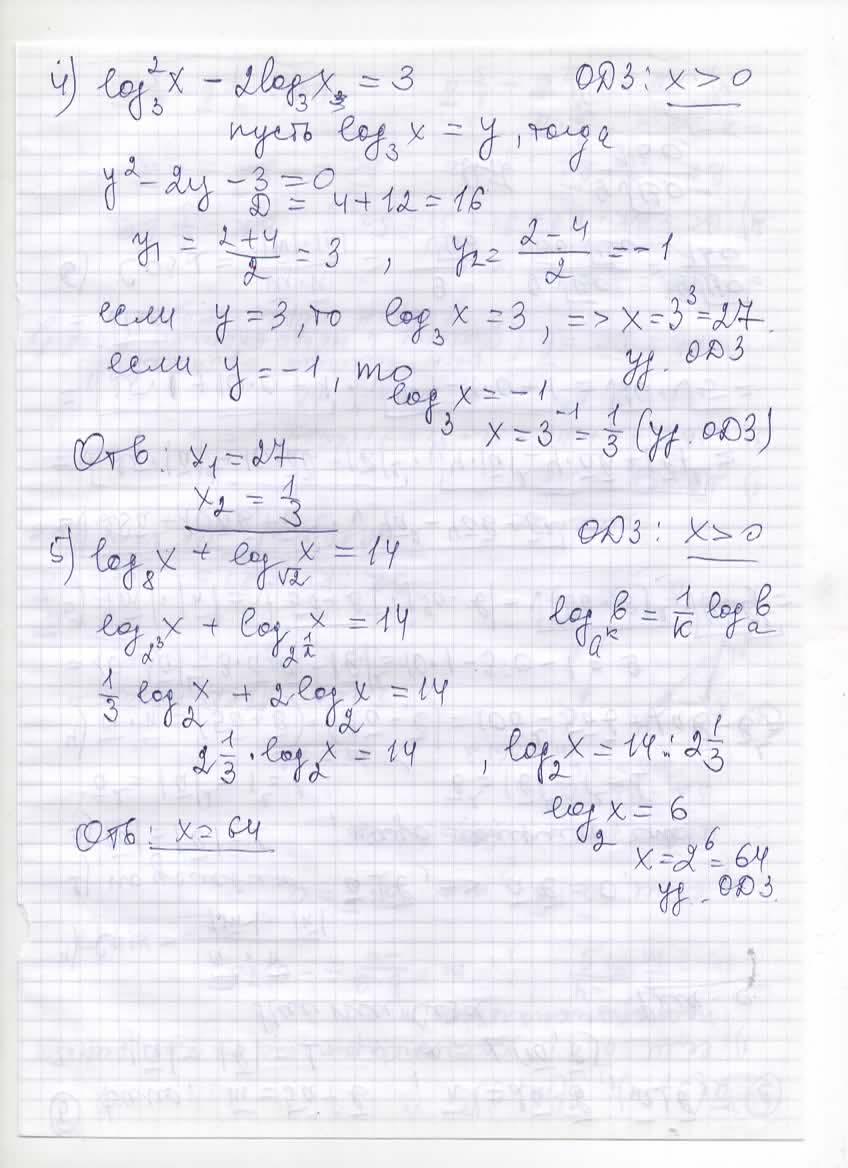 4) log₃²x − 2log₃x = 3 ОДЗ: x > 0
пусть log₃x = y, тогда
y² − 2y − 3 = 0
D = 4 + 12 = 16
y₁ = (2+4)/2 = 3 , y₂ = (2−4)/2 = −1
если y = 3, то log₃x = 3, => x = 3³ = 27.
уд. ОДЗ
если y = −1, то
log₃x = −1
x = 3⁻¹ = 1/3 (уд. ОДЗ)
Отв: x₁ = 27
x₂ = 1/3
5) log₈x + log_√2 x = 14 ОДЗ: x > 0
log_2³ x + log_2^(1/2) x = 14 log_a^k b = 1/k log_a b
1/3 log₂x + 2log₂x = 14
2 1/3 · log₂x = 14 , log₂x = 14 : 2 1/3
log₂x = 6
Отв: x = 64
x = 2⁶ = 64
уд. ОДЗ.